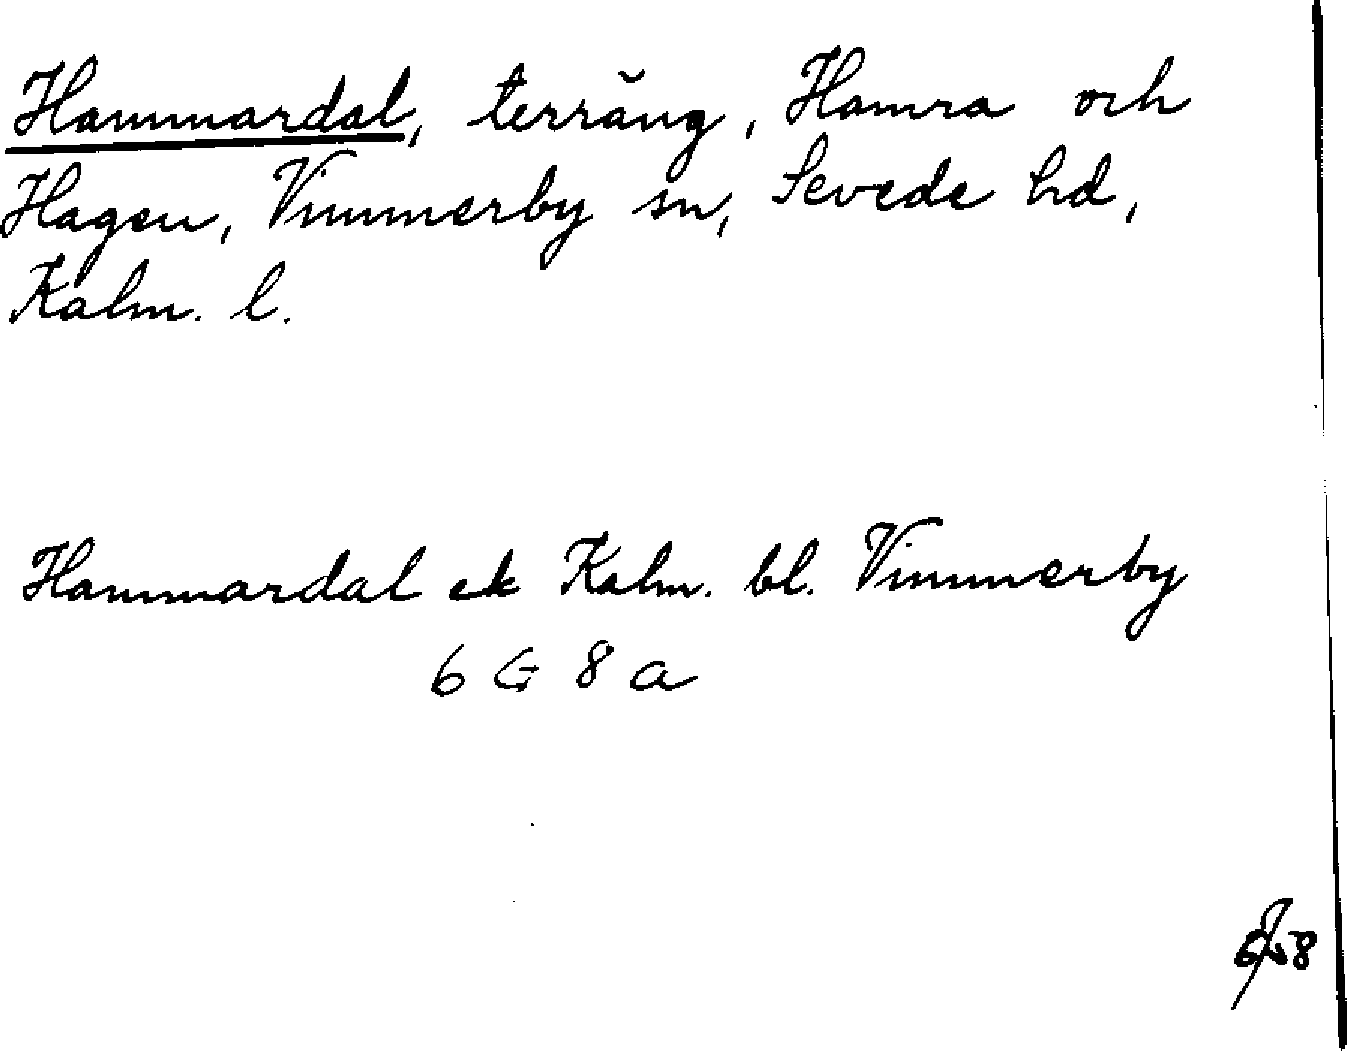 Hammardal, terräng, Hamra och
Hagen, Vimmerby sn, Sevede hd,
Kalm. l.
Hammardal ek Kalm. bl. Vimmerby
6 G 8 a